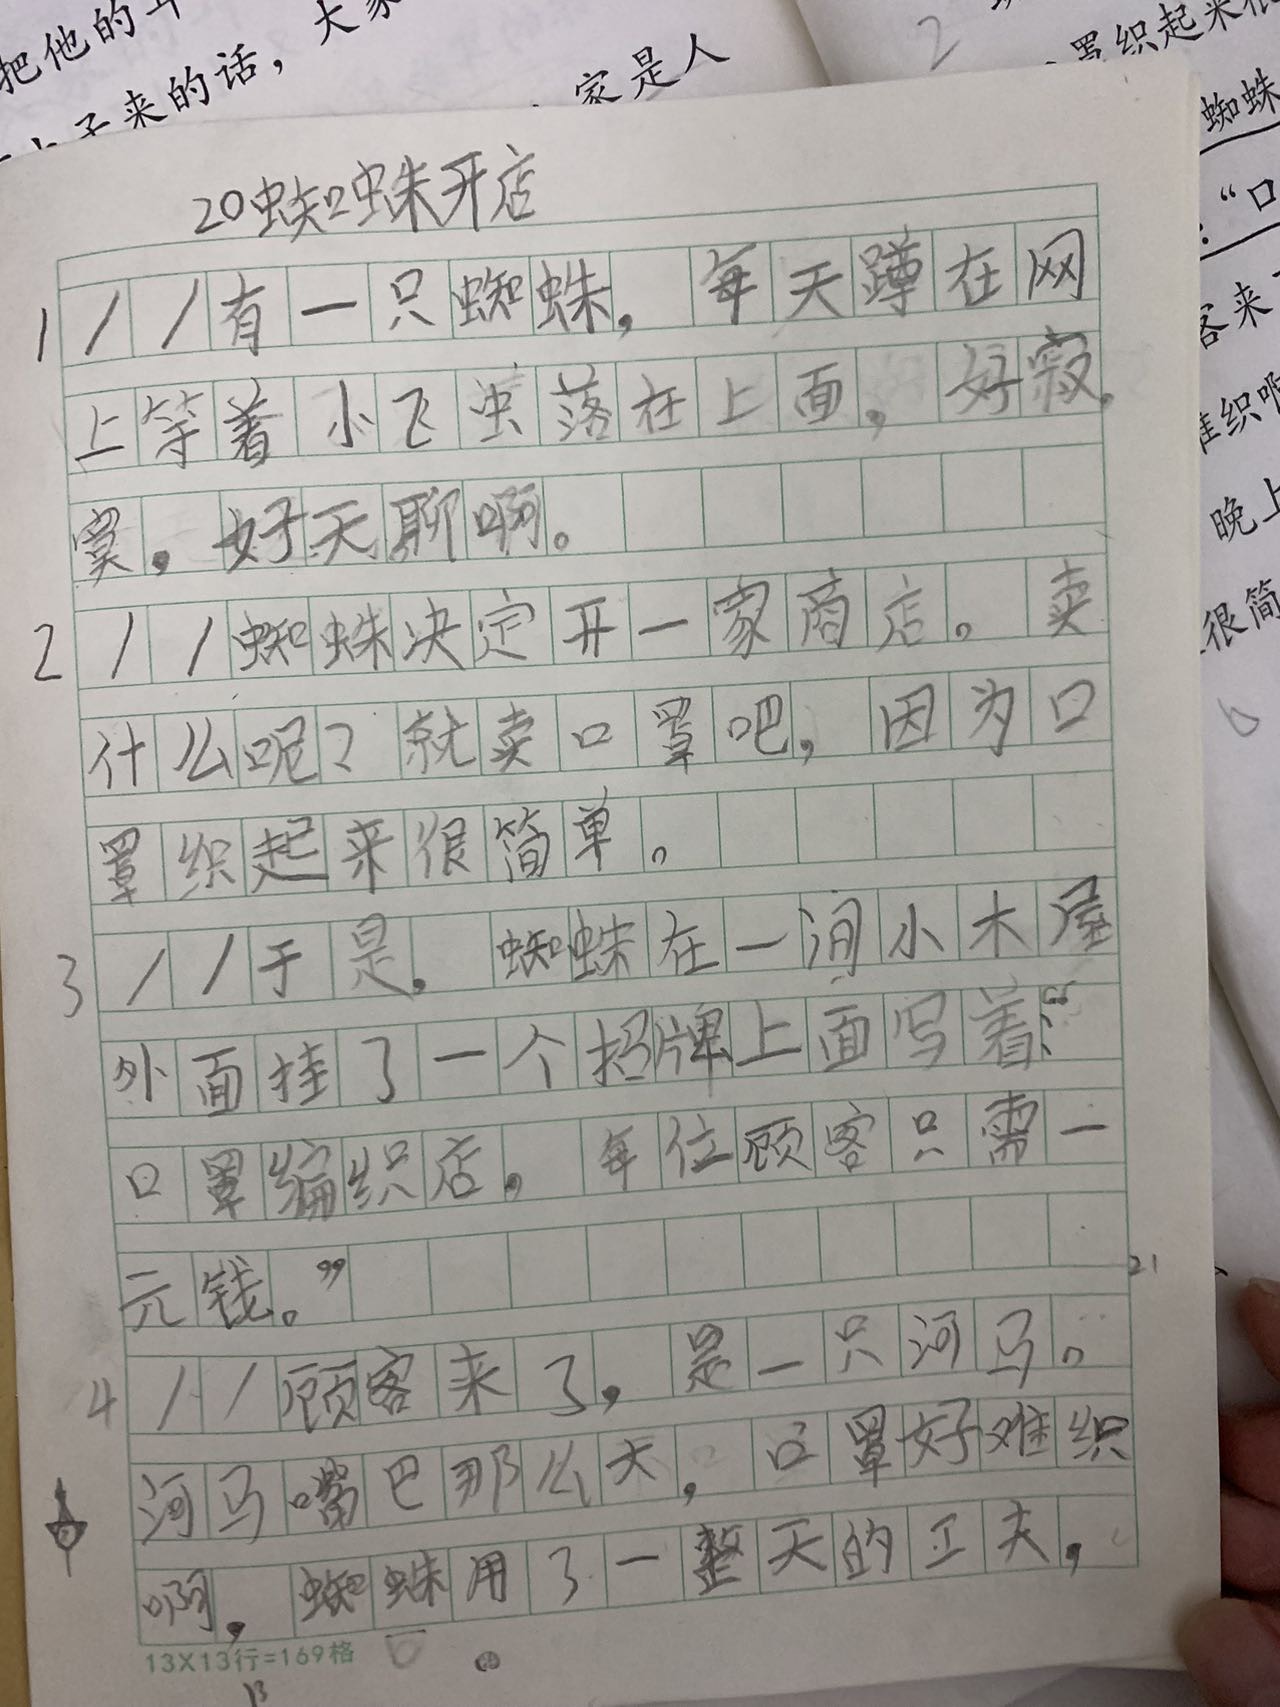 把他的
子来的话，大家
家是人
2
罩织起来很
蜘蛛
：“口
客来
难织啊
晚上
很简
6
20蜘蛛开店
1 / / 有一只蜘蛛，每天蹲在网
上等着小飞虫落在上面，好寂
寞，好天聊啊。
2 / / 蜘蛛决定开一家商店。卖
什么呢？就卖口罩吧，因为口
罩织起来很简单。
3 / / 于是，蜘蛛在一间小木屋
外面挂了一个招牌上面写着：“
口罩编织店，每位顾客只需一
元钱。”
21
4 / / 顾客来了，是一只河马。
河马嘴巴那么大，口罩好难织
啊，蜘蛛用了一整天的工夫，
13X13行=169格
6
13